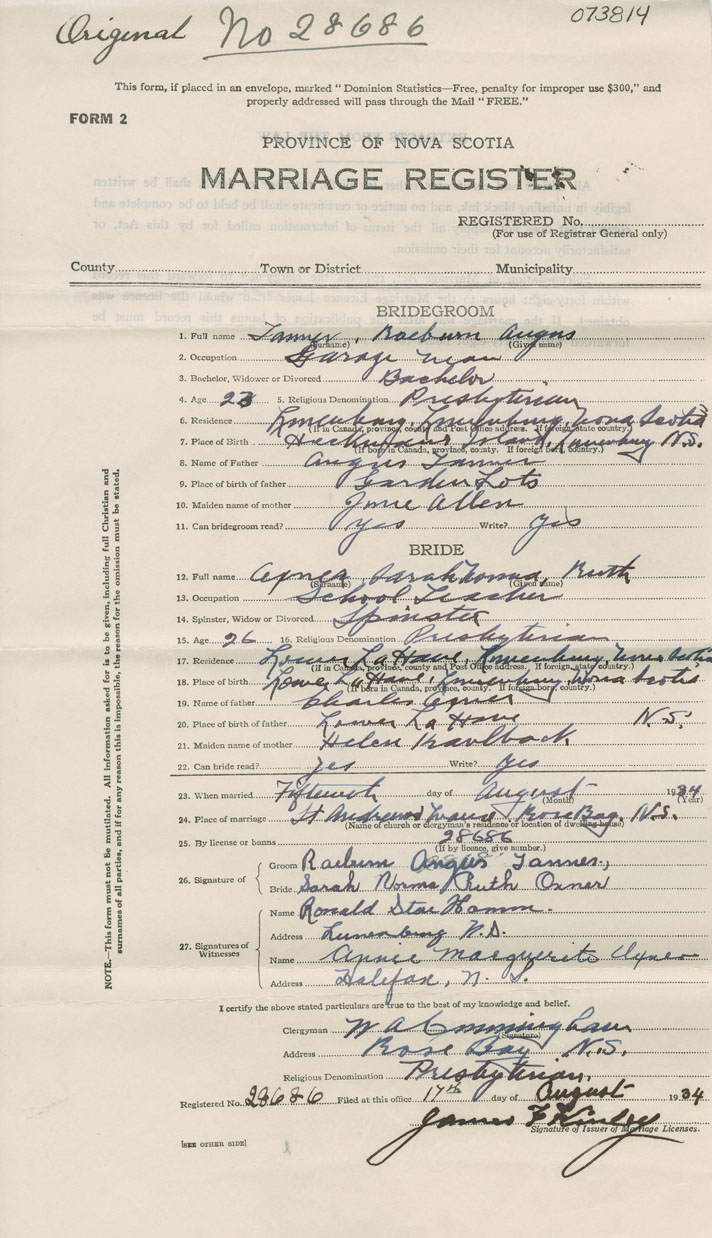 Original No 28686
073814
This form, if placed in an envelope, marked "Dominion Statistics—Free, penalty for improper use $300," and
properly addressed will pass through the Mail "FREE."
FORM 2
PROVINCE OF NOVA SCOTIA
MARRIAGE REGISTER
REGISTERED No.
(For use of Registrar General only)
County Town or District Municipality
BRIDEGROOM
1. Full name Tanner, Raeburn Angus
(Surname) (Given name)
2. Occupation Garage man
3. Bachelor, Widower or Divorced Bachelor
4. Age 23 5. Religious Denomination Presbyterian
6. Residence Lunenburg, Lunenburg, Nova Scotia
(If in Canada, province, county and Post Office address. If foreign state country.)
7. Place of Birth Island, Lunenburg N.S.
(If born in Canada, province, county. If foreign born, country.)
8. Name of Father Angus Tanner
9. Place of birth of father Garden Lots
10. Maiden name of mother Allen
11. Can bridegroom read? Yes Write? Yes
BRIDE
12. Full name Oxner, Sarah Norma, Ruth
(Surname) (Given name)
13. Occupation School Teacher
14. Spinster, Widow or Divorced Spinster
15. Age 26 16. Religious Denomination Presbyterian
17. Residence Lower La Have, Lunenburg, Nova Scotia
(If in Canada, province, county and Post Office address. If foreign state country.)
18. Place of birth Lower La Have, Lunenburg, Nova Scotia
(If born in Canada, province, county. If foreign born, country.)
19. Name of father Charles Oxner
20. Place of birth of father Lower La Have N.S.
21. Maiden name of mother Helen Kaulback
22. Can bride read? Yes Write? Yes
23. When married Fifteenth day of August 1934
(Month) (Year)
24. Place of marriage St Andrews Rose Bay, N.S.
(Name of church or clergyman's residence or location of dwelling house)
25. By license or banns 28686
(If by licence, give number.)
26. Signature of
Groom Raeburn Angus Tanner,
Bride Sarah Norma Ruth Oxner
27. Signatures of Witnesses
Name Ronald Hamm.
Address Lunenburg
Name Annie Marguerite Oxner
Address Halifax, N. S.
I certify the above stated particulars are true to the best of my knowledge and belief.
Clergyman W A Cunningham
(Signature)
Address Rose Bay N.S.
Religious Denomination Presbyterian.
Registered No. 28686 Filed at this office 17th day of August 1934
James F Kinley
Signature of Issuer of Marriage Licenses.
[SEE OTHER SIDE]
NOTE.—This form must not be mutilated. All information asked for is to be given, including full Christian and
surnames of all parties, and if for any reason this is impossible, the reason for the omission must be stated.